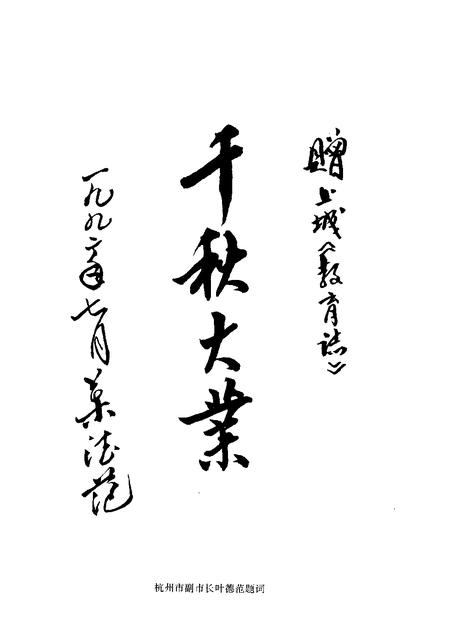 贈上城《教育誌》
千秋大業
一九九二年七月 葉德范
杭州市副市长叶德范题词